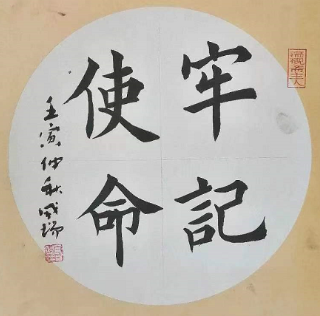 牢記
使命
壬寅仲秋